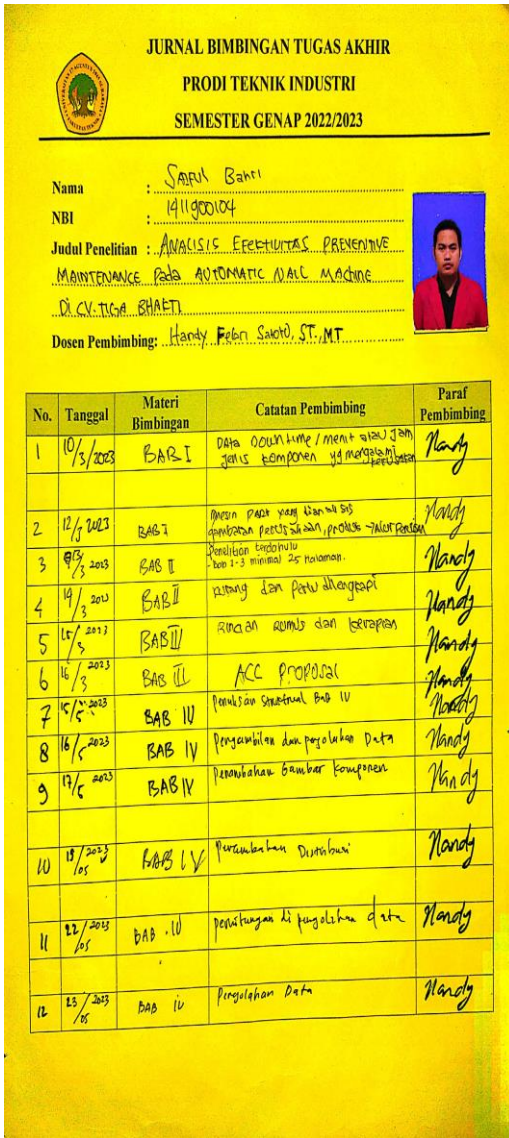 JURNAL BIMBINGAN TUGAS AKHIR
PRODI TEKNIK INDUSTRI
SEMESTER GENAP 2022/2023
Nama : Saiful Bahri
NBI : 1411900104
Judul Penelitian : ANALISIS EFEKTIVITAS PREVENTIVE
MAINTENANCE Pada AUTOMATIC NAIL MACHINE
Di CV. TIGA BHAKTI
Dosen Pembimbing: Handy Febri Satoto, ST., MT
No. Tanggal Materi Bimbingan Catatan Pembimbing Paraf Pembimbing
1 10/3/2023 BAB I Data Downtime / menit atau Jam
jenis komponen yg mengalami kerusakan Handy
2 12/3 2023 BAB I mesin part yang dianalisis
gambaran perusahaan, produk Handy
3 3 2023 BAB II Penelitian terdahulu
- bab 1-3 minimal 25 halaman. Handy
4 14/3 BAB II kurang dan perlu dilengkapi Handy
5 15/3 2023 BAB III rumus dan kerapian Handy
6 16/3 2023 BAB III ACC PROPOSAL Handy
7 15/5 2023 BAB IV Penulisan Struktural Bab IV Handy
8 16/5 2023 BAB IV Pengambilan dan pegolahan Data Handy
9 17/5 2023 BAB IV Penambahan Gambar Komponen Handy
10 2023/05 BAB IV Penambahan Distribusi Handy
11 22/2023/05 BAB . IV perhitungan di pengolahan data Handy
12 23/2023/05 BAB iv Pengolahan Data Handy